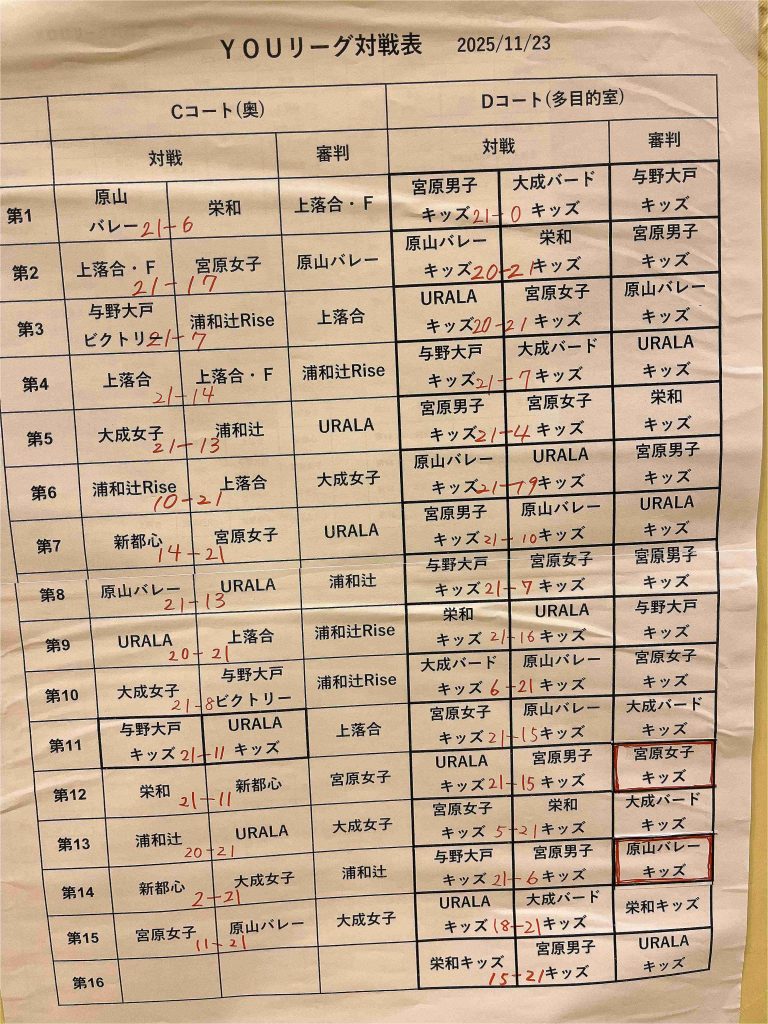 YOUリーグ対戦表 2025/11/23
Cコート(奥) Dコート(多目的室)
対戦 審判 対戦 審判
第1 原山バレー 21-6 栄和 上落合・F 宮原男子キッズ 21-0 大成バードキッズ 与野大戸キッズ
第2 上落合・F 21-17 宮原女子 原山バレー 原山バレーキッズ 20-21 栄和キッズ 宮原男子キッズ
第3 与野大戸ビクトリー 21-7 浦和辻Rise 上落合 URALAキッズ 20-21 宮原女子キッズ 原山バレーキッズ
第4 上落合 21-14 上落合・F 浦和辻Rise 与野大戸キッズ 21-7 大成バードキッズ URALAキッズ
第5 大成女子 21-13 浦和辻 URALA 宮原男子キッズ 21-4 宮原女子キッズ 栄和キッズ
第6 浦和辻Rise 10-21 上落合 大成女子 原山バレーキッズ 21-19 URALAキッズ 宮原男子キッズ
第7 新都心 14-21 宮原女子 URALA 宮原男子キッズ 21-10 原山バレーキッズ URALAキッズ
第8 原山バレー 21-13 URALA 浦和辻 与野大戸キッズ 21-7 宮原女子キッズ 宮原男子キッズ
第9 URALA 20-21 上落合 浦和辻Rise 栄和キッズ 21-16 URALAキッズ 与野大戸キッズ
第10 大成女子 21-8 与野大戸ビクトリー 浦和辻Rise 大成バードキッズ 6-21 原山バレーキッズ 宮原女子キッズ
第11 与野大戸キッズ 21-11 URALAキッズ 上落合 宮原女子キッズ 21-15 原山バレーキッズ 大成バードキッズ
第12 栄和 21-11 新都心 宮原女子 URALAキッズ 21-15 宮原男子キッズ 宮原女子キッズ
第13 浦和辻 20-21 URALA 大成女子 宮原女子キッズ 5-21 栄和キッズ 大成バードキッズ
第14 新都心 2-21 大成女子 浦和辻 与野大戸キッズ 21-6 宮原男子キッズ 原山バレーキッズ
第15 宮原女子 11-21 原山バレー 大成女子 URALAキッズ 18-21 大成バードキッズ 栄和キッズ
第16 栄和キッズ 15-21 宮原男子キッズ URALAキッズ